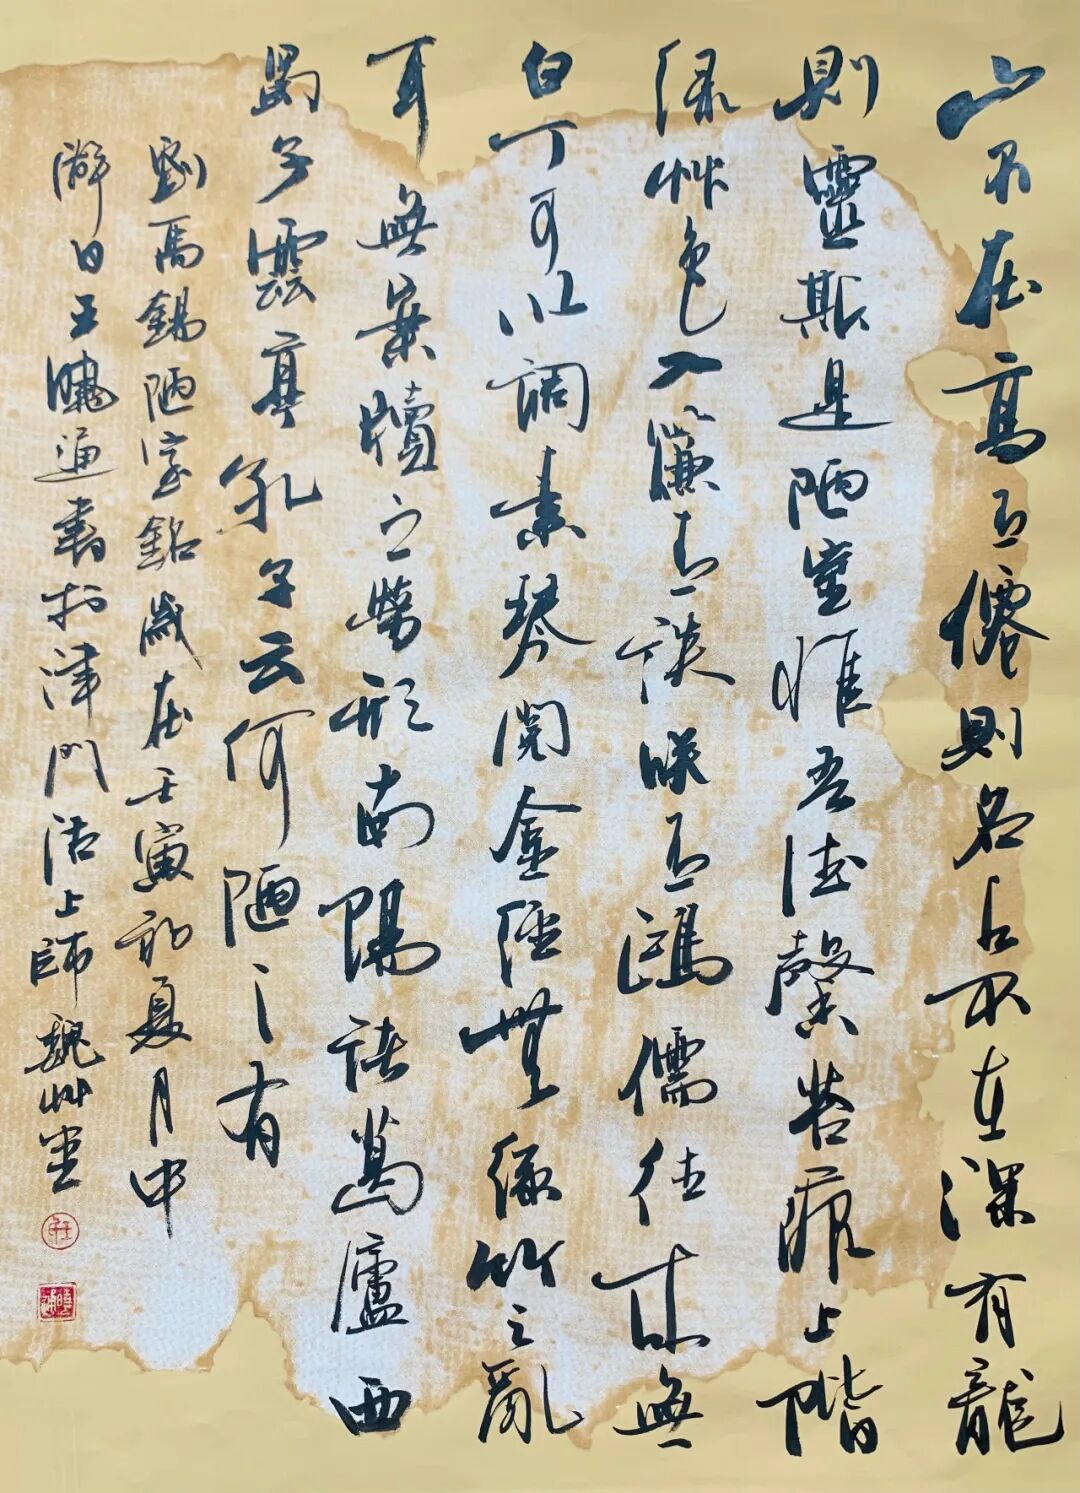 山不在高有僊則名水不在深有龍
則靈斯是陋室惟吾德馨苔痕上階
綠艸色入簾青談咲有鴻儒往來無
白丁可以調素琴閱金經無絲竹之亂
耳無案牘之勞形南陽諸葛廬西
蜀子雲亭孔子云何陋之有
劉禹錫陋室銘歲在壬寅初夏月中
澣日王曉通書於津門沽上師魏艸堂
曉通